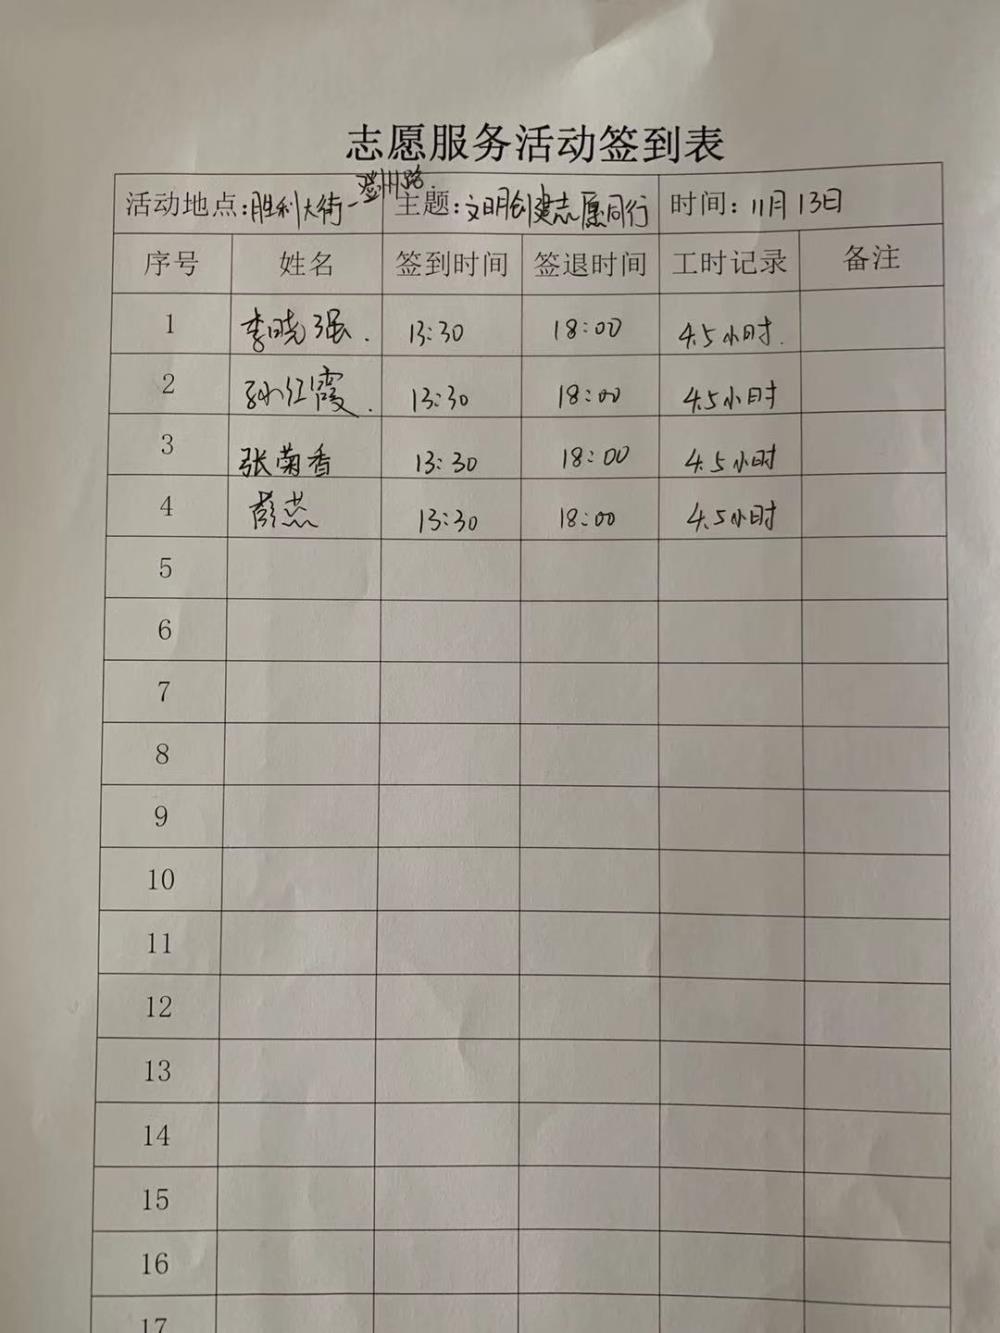 志愿服务活动签到表
活动地点:胜利大街-登州路. 主题:文明创建志愿同行 时间:11月13日
序号 姓名 签到时间 签退时间 工时记录 备注
1 李晓强. 13:30 18:00 4.5小时.
2 孙红霞. 13:30 18:00 4.5小时
3 张菊香 13:30 18:00 4.5小时
4 彭燕 13:30 18:00 4.5小时
5
6
7
8
9
10
11
12
13
14
15
16
17